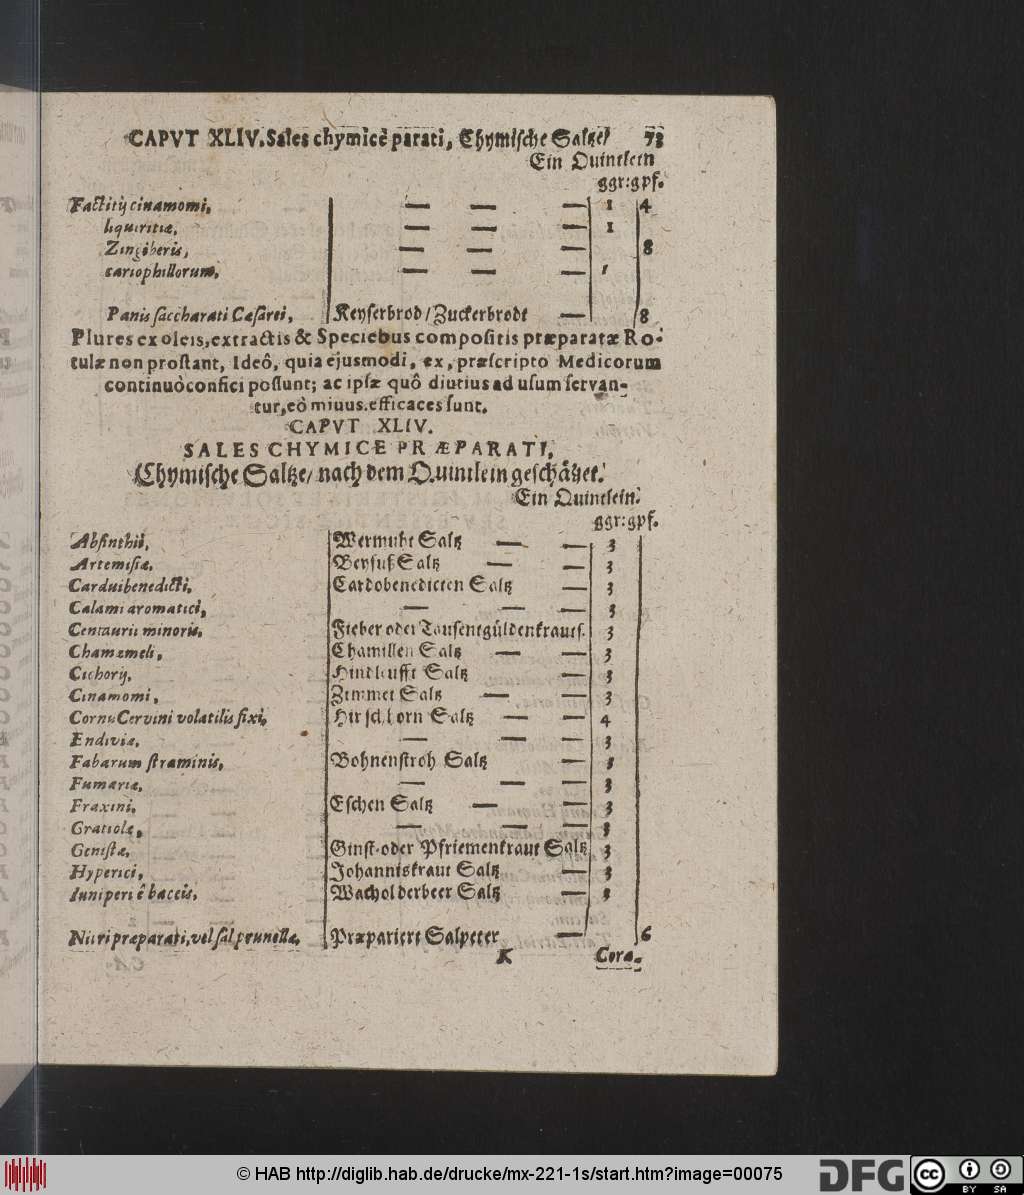 CAPVT XLIV. Sales chymicè parati, Chymische Saltze/ 73
Ein Quintlein
ggr: gpf.
Factitij cinamomi, — — — 1 4
liquiritiæ, — — — 1
Zingiberis, — — — 8
cariophillorum, — — — 1
Panis saccharati Cæsarei, Keyserbrod/Zuckerbrodt — 8
Plures ex oleis, extractis & Speciebus compositis præparatæ Ro-
tulæ non prostant, Ideô, quia ejusmodi, ex, præscripto Medicorum
continuò confici possunt; ac ipsæ quô diutius ad usum servan-
tur, eò miuus. efficaces sunt.
CAPVT XLIV.
SALES CHYMICE PRÆPARATI,
Chymische Saltze/ nach dem Quintlein geschätzet.
Ein Quintlein.
ggr: gpf.
Absinthii, Wermuht Saltz — — 3
Artemisiæ, Beysuß Saltz — — 3
Carduibenedicti, Cardobenedicten Saltz — 3
Calami aromatici, — — — 3
Centaurii minoris, Fieber oder Tausentgüldenkrauts. 3
Chamæmeli, Chamillen Saltz — — 3
Cichorij, Hindleufft Saltz — 3
Cinamomi, Zimmet Saltz — — 3
Cornu Cervini volatilis fixi, Hirschhorn Saltz — — 4
Endiviæ, — — — 3
Fabarum straminis, Bohnenstroh Saltz — 3
Fumariæ, — — — 3
Fraxini, Eschen Saltz — — 3
Gratiolæ, — — — 3
Genistæ, Ginst-oder Pfriemenkraut Saltz 3
Hyperici, Johanniskraut Saltz — 3
Iuniperi ê baccis, Wacholderbeer Saltz — 3
Nitri præparati, vel sal prunellæ, Præpariert Salpeter — 6
K Cora-
© HAB http://diglib.hab.de/drucke/mx-221-1s/start.htm?image=00075
DFG
cc
BY SA